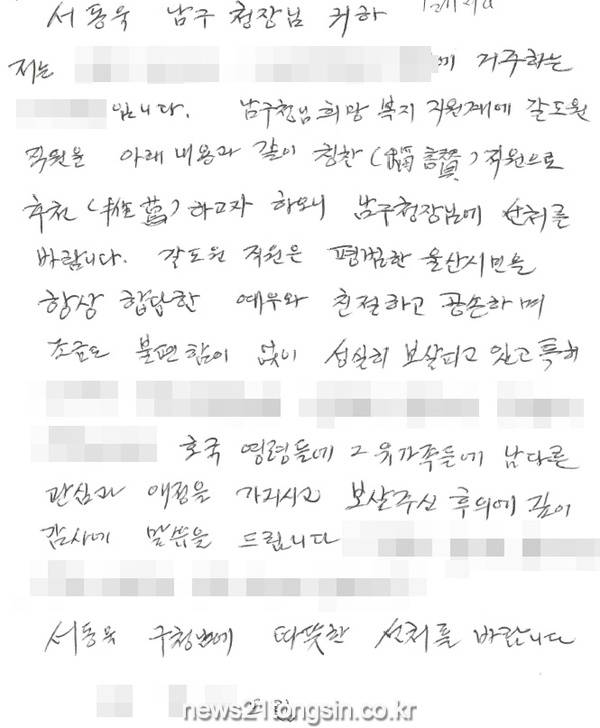 서동욱 남구 청장님 귀하
저는 에 거주하는
입니다. 남구청님 희망 복지 직원계에 갈도원
직원을 아래 내용과 같이 칭찬 (稱讚) 직원으로
추천 (推薦) 하고자 하오니 남구청장님에 선처를
바랍니다. 갈도원 직원은 평범한 울산시민을
항상 합당한 예우와 친절하고 공손하며
조금도 불편함이 없이 성실히 보살피고 있고 특히
호국 영령들에 그 유가족들에 남다른
관심과 애정을 가지시고 보살주신 후의에 깊이
감사에 말씀을 드립니다
서동욱 구청님에 따뜻한 선처를 바랍니다
news21tongsin.co.kr